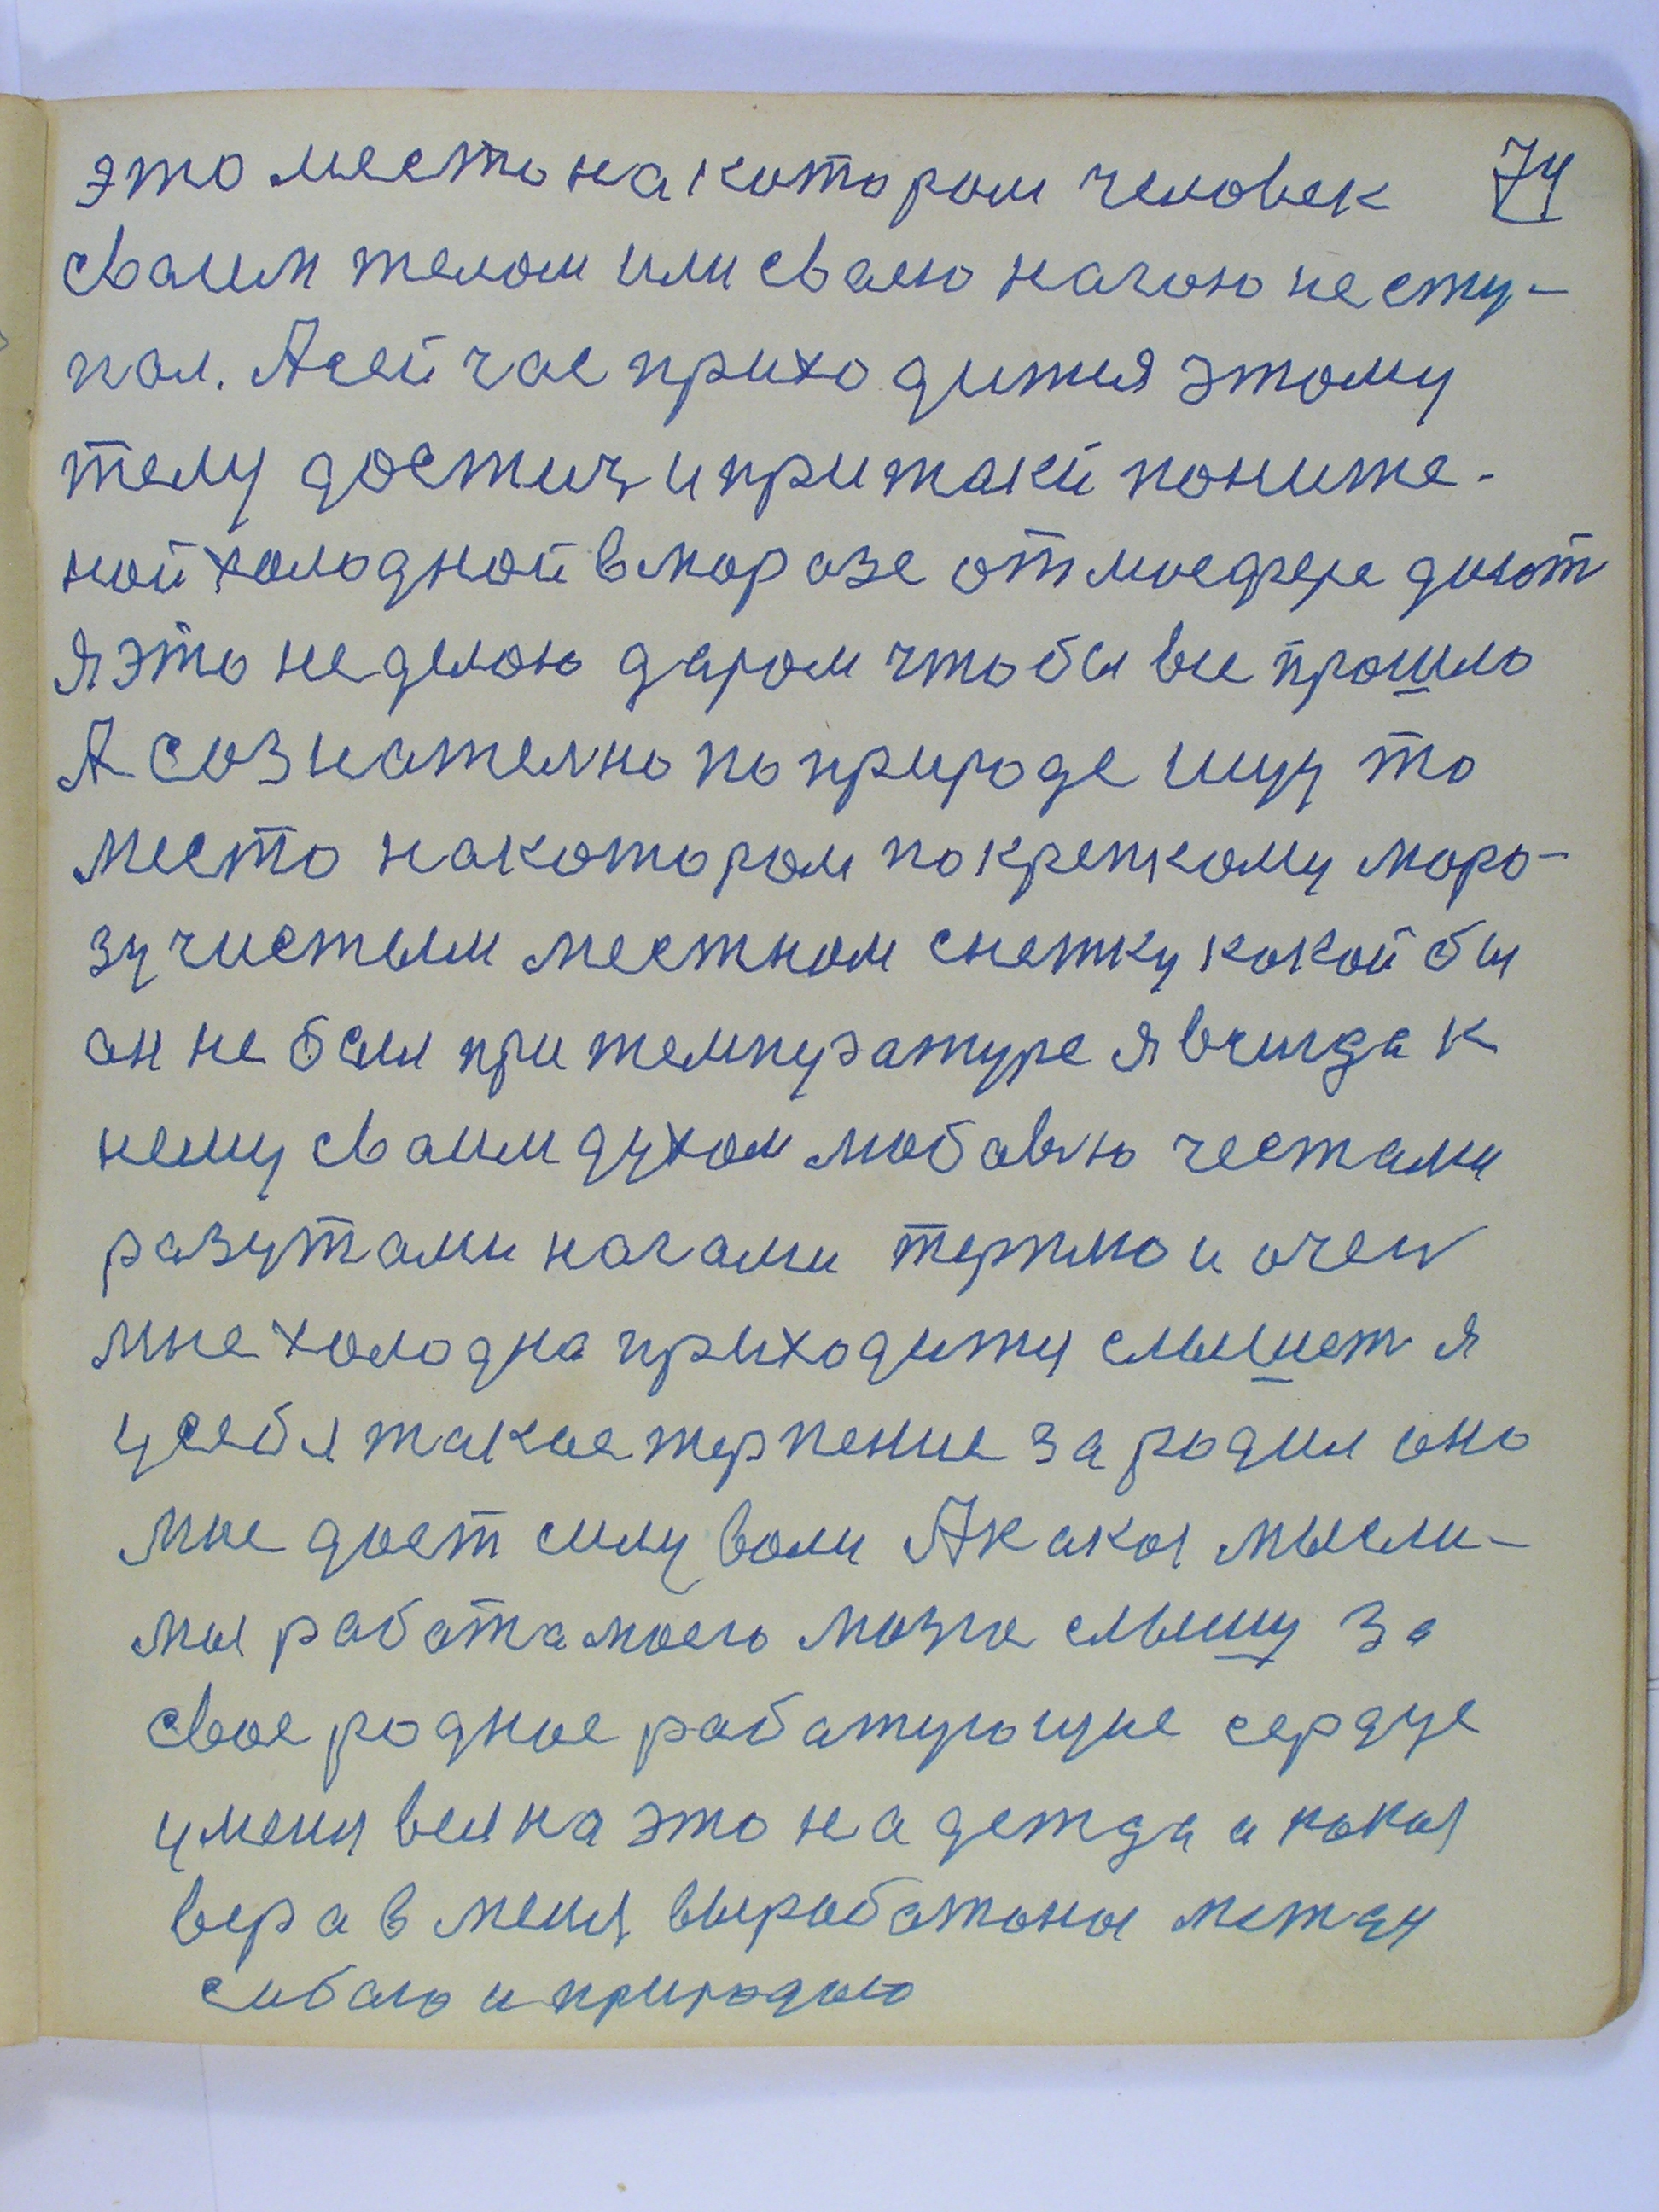 это место на котором человек 74
сваим телом или сваею нагою не сту-
пал. А сейчас приходится этому
телу достич и при такей пониже-
ной холодной в морозе отмосфере дают
Я это не делаю даром чтобы все прошло
А сознателно по природе ищу то
место на котором по крепкому моро-
зу чистым местном снежку какой бы
он не был при темпуратуре я всигда к
нему сваим духом любавю честами
разутами нагами терплю и очен
мне холодна приходитця слышет я
у себя такое терпение зародил оно
мне дает силу воли А какая мысли-
мая работа моего мозга слышу за
свое родное работующие сердце
у меня вся на это надежда а какая
вера в меня выработоная между
сибою и природою